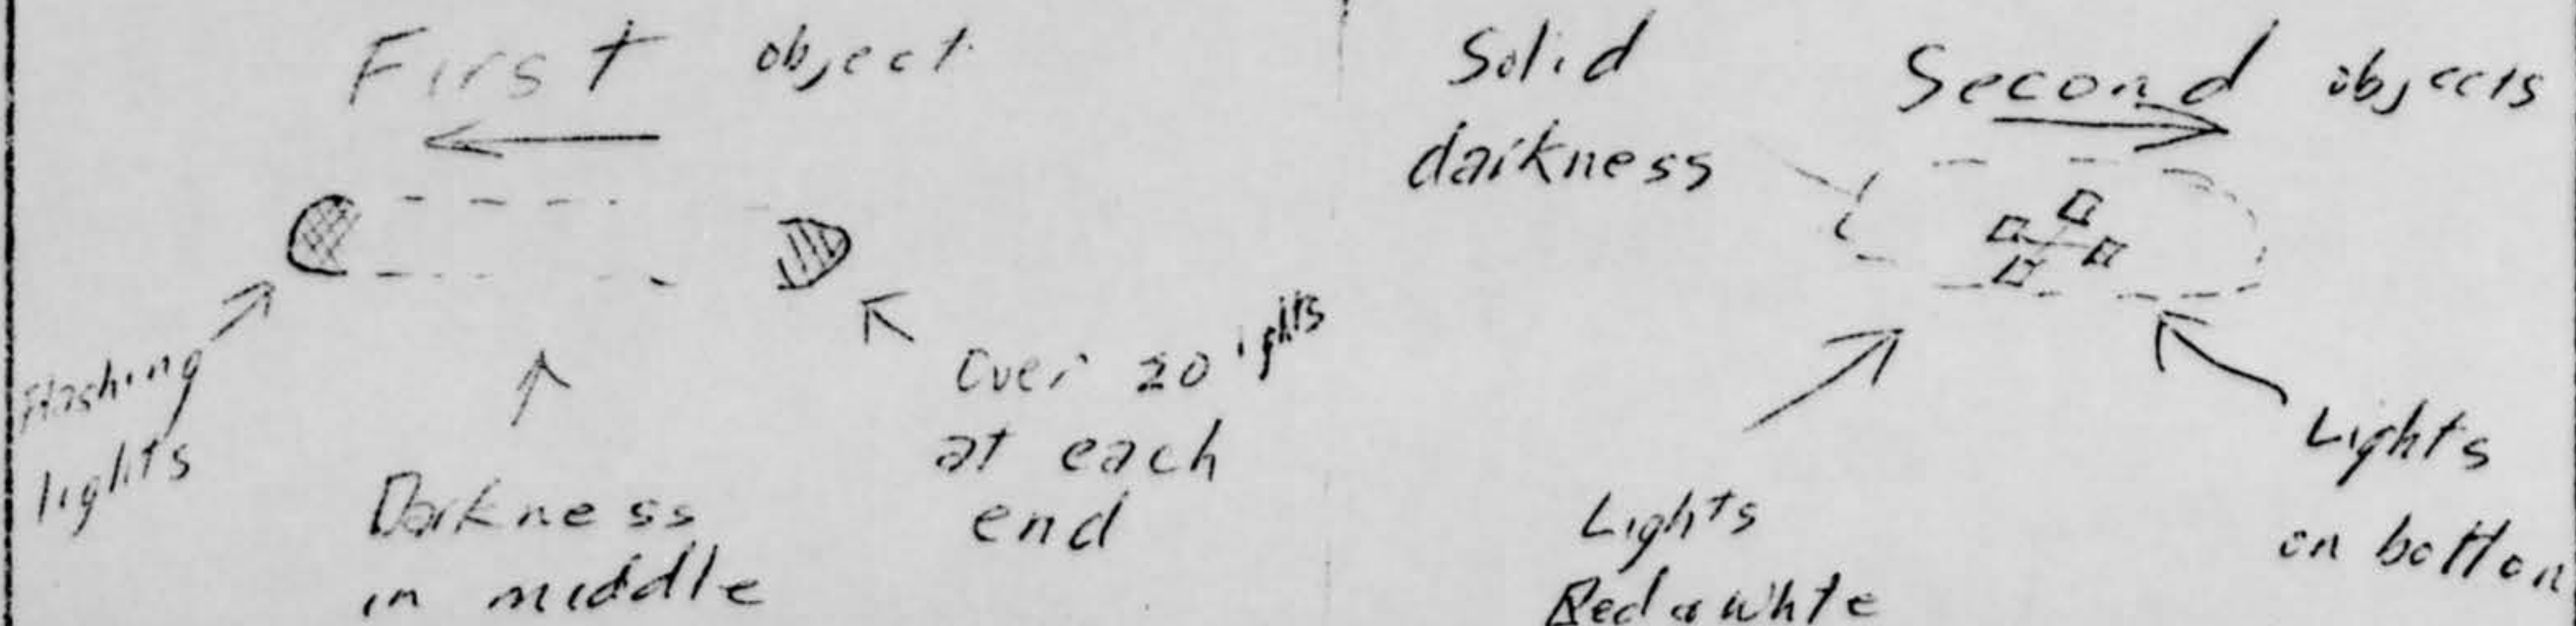 First object
Flashing
lights
Darkness
in middle
Over 20 lights
at each
end
Solid
darkness
Second objects
Lights
Red & White
Lights
on bottom